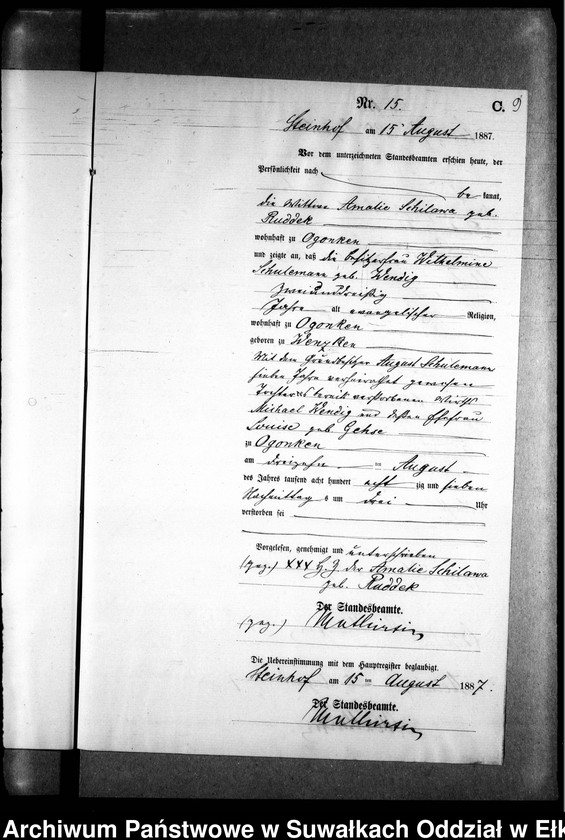 Nr. 15. C. 9
Steinhof am 15ten August 1887.
Vor dem unterzeichneten Standesbeamten erschien heute, der
Persönlichkeit nach
bekannt,
die Wittwe Amalie Schilawa geb.
Ruddek
wohnhaft zu Ogonken
und zeigte an, daß die Besitzerfrau Wilhelmine
Schulemann geb. Wendig
zweiunddreißig
Jahre alt evangelischer Religion,
wohnhaft zu Ogonken
geboren zu Wenzken
Mit dem Grundbesitzer August Schulemann
sieben Jahre verheirathet gewesen
Tochter des bereits verstorbenen Wirths
Michael Wendig und dessen Ehefrau
Louise geb Gehse
zu Ogonken
am dreizehn ten August
des Jahres tausend acht hundert acht zig und sieben
Nachmittags um drei Uhr
verstorben sei
Vorgelesen, genehmigt und unterschrieben
(gez.) XXX H. Z der Amalie Schilawa
geb. Ruddek
Der Standesbeamte.
(gez.)
Die Uebereinstimmung mit dem Hauptregister beglaubigt.
Steinhof am 15 ten August 1887.
Der Standesbeamte.
Archiwum Państwowe w Suwałkach Oddział w Ełk